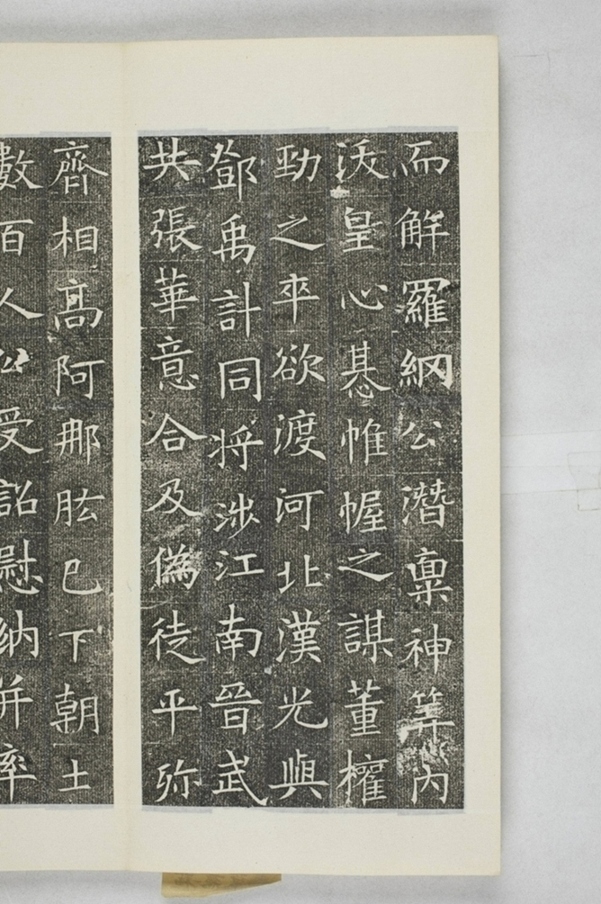 而解羅網公潛稟神筭內
沃皇心惎帷幄之謀董權
勁之卒欲渡河北漢光與
鄧禹計同將涉江南晉武
共張華意合及偽徒平殄
齊相高阿那肱已下朝士
數百人公受詔慰納并率